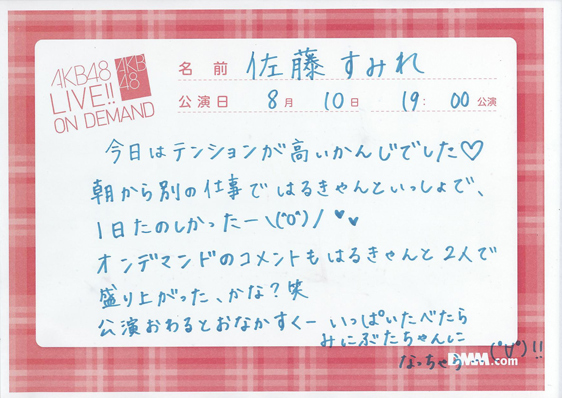 AKB48
LIVE!!
ON DEMAND
AKB
48
名前 佐藤すみれ
公演日 8月 10日 19:00公演
今日はテンションが高いかんじでした♡
朝から別の仕事ではるきゃんといっしょで、
1日たのしかったー\(°o°)/♥♥
オンデマンドのコメントもはるきゃんと2人で
盛り上がった、かな?笑
公演おわるとおなかすくー いっぱいたべたら
みにぶたちゃんに
なっちゃう (°∀°)!!
DMM.com